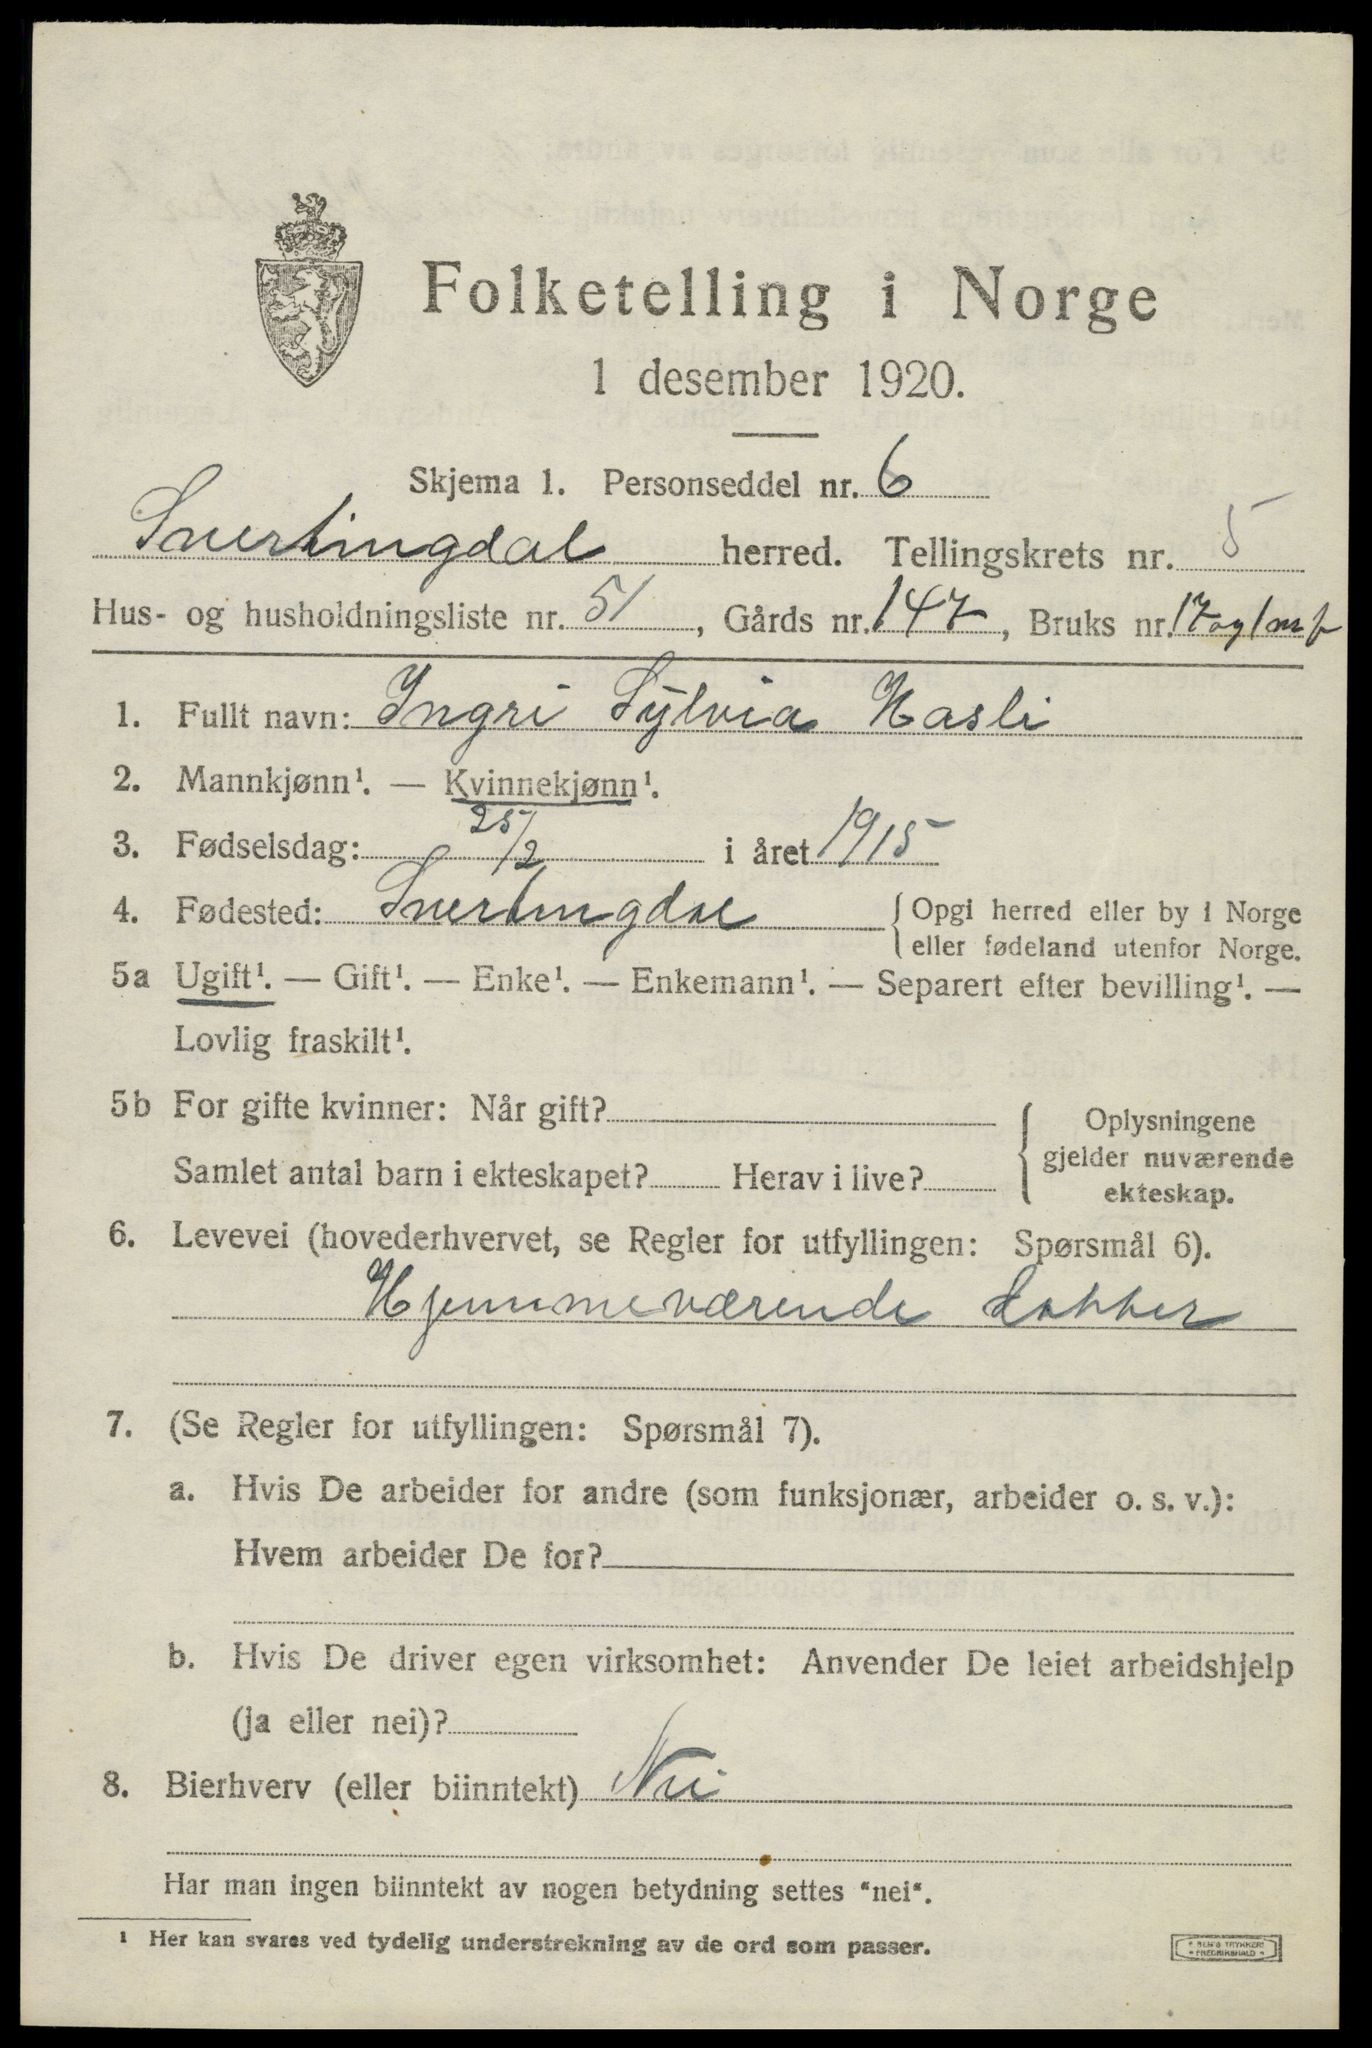 Folketelling i Norge
1 desember 1920.
Skjema 1. Personseddel nr. 6
Snertingdal herred. Tellingskrets nr. 5
Hus- og husholdningsliste nr. 51, Gårds nr. 147, Bruks nr. 17 og 1 m fl
1. Fullt navn: Ingri Sylvia Hasli
2. Mannkjønn¹. — Kvinnekjønn¹.
3. Fødselsdag: 25/2 i året 1915
4. Fødested: Snertingdal { Opgi herred eller by i Norge
eller fødeland utenfor Norge.
5a Ugift¹. — Gift¹. — Enke¹. — Enkemann¹. — Separert efter bevilling¹. —
Lovlig fraskilt¹.
5b For gifte kvinner: Når gift?
Samlet antal barn i ekteskapet? Herav i live?
{ Oplysningene
gjelder nuværende
ekteskap.
6. Levevei (hovederhvervet, se Regler for utfyllingen: Spørsmål 6).
Hjemmeværende datter
7. (Se Regler for utfyllingen: Spørsmål 7).
a. Hvis De arbeider for andre (som funksjonær, arbeider o. s. v.):
Hvem arbeider De for?
b. Hvis De driver egen virksomhet: Anvender De leiet arbeidshjelp
(ja eller nei)?
8. Bierhverv (eller biinntekt) Nei
Har man ingen biinntekt av nogen betydning settes "nei".
¹ Her kan svares ved tydelig understrekning av de ord som passer.
FREDRIKSHALD